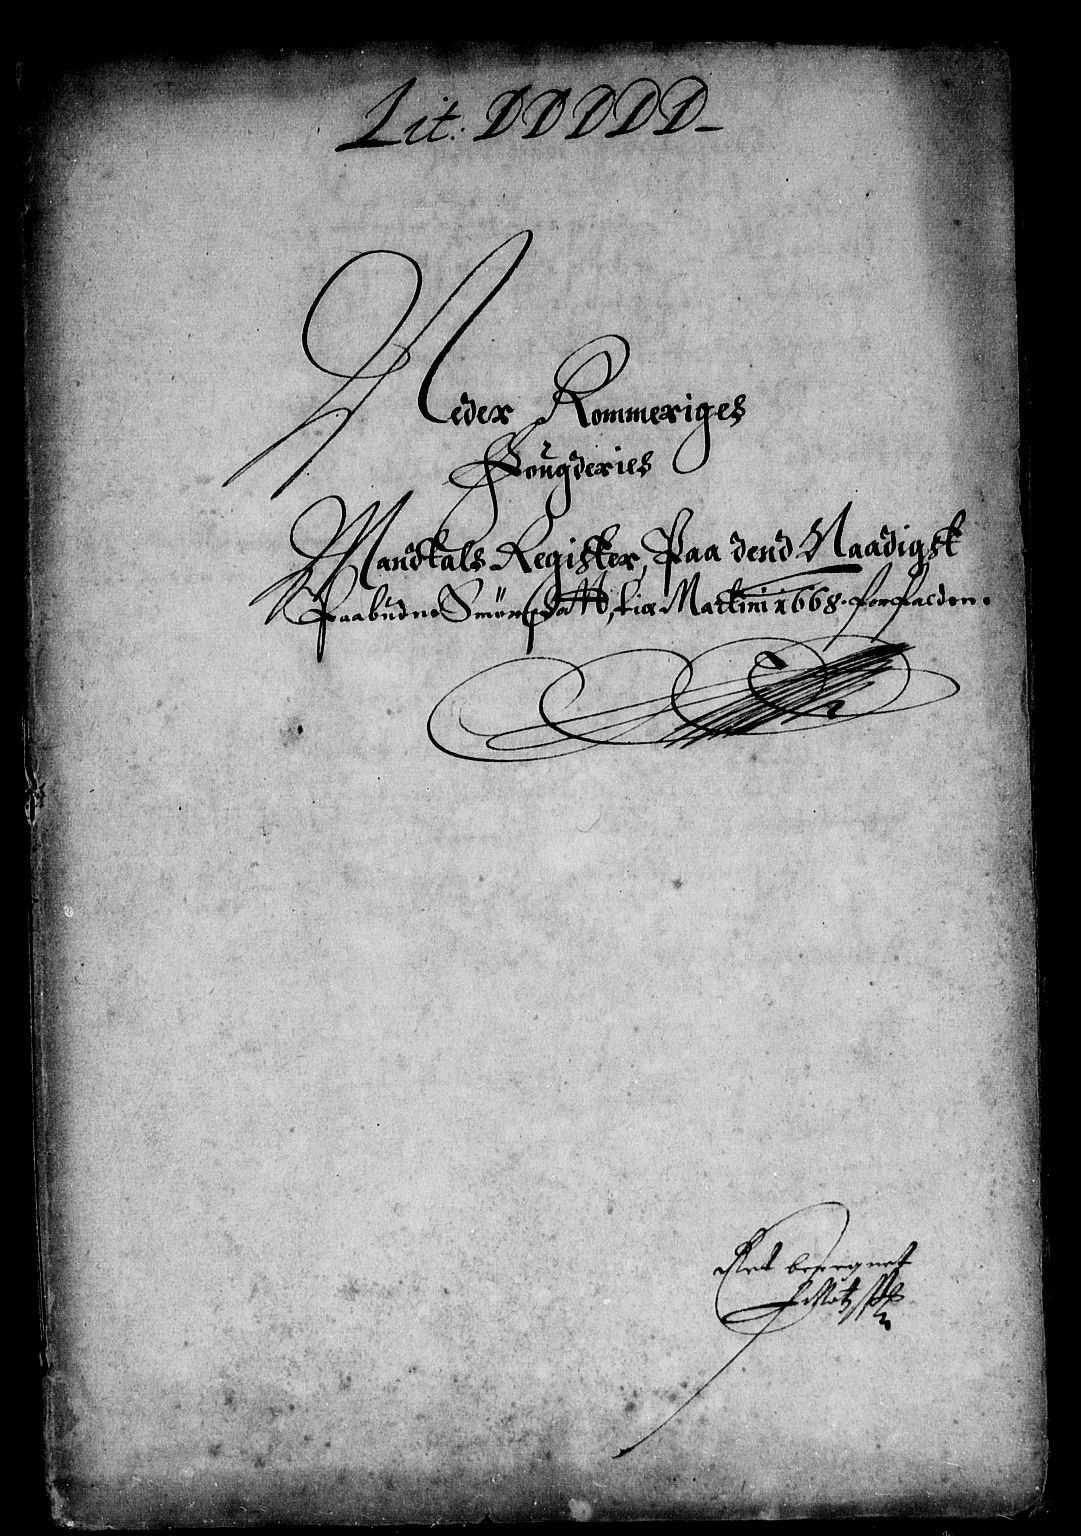 Lit: DDDDD
Neder Rommeriges
Fougderies
Mandtals Register, Paa dend Naadigst
Paabudne Smör Schatt, til Martini 1668. forfalden.
Ret beregnet